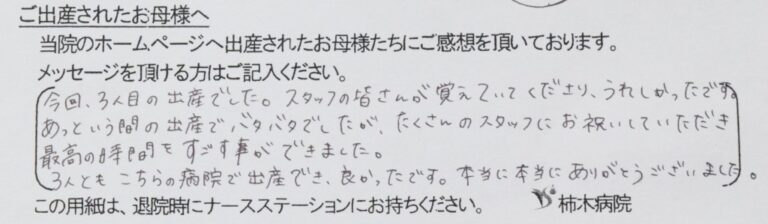 ご出産されたお母様へ
当院のホームページへ出産されたお母様たちにご感想を頂いております。
メッセージを頂ける方はご記入ください。
今回、3人目の出産でした。スタッフの皆さんが覚えていてくださり、うれしかったです。
あっという間の出産でバタバタでしたが、たくさんのスタッフにお祝いしていただき
最高の時間をすごす事ができました。
3人ともこちらの病院で出産でき、良かったです。本当に本当にありがとうございました。
この用紙は、退院時にナースステーションにお持ちください。 柿木病院